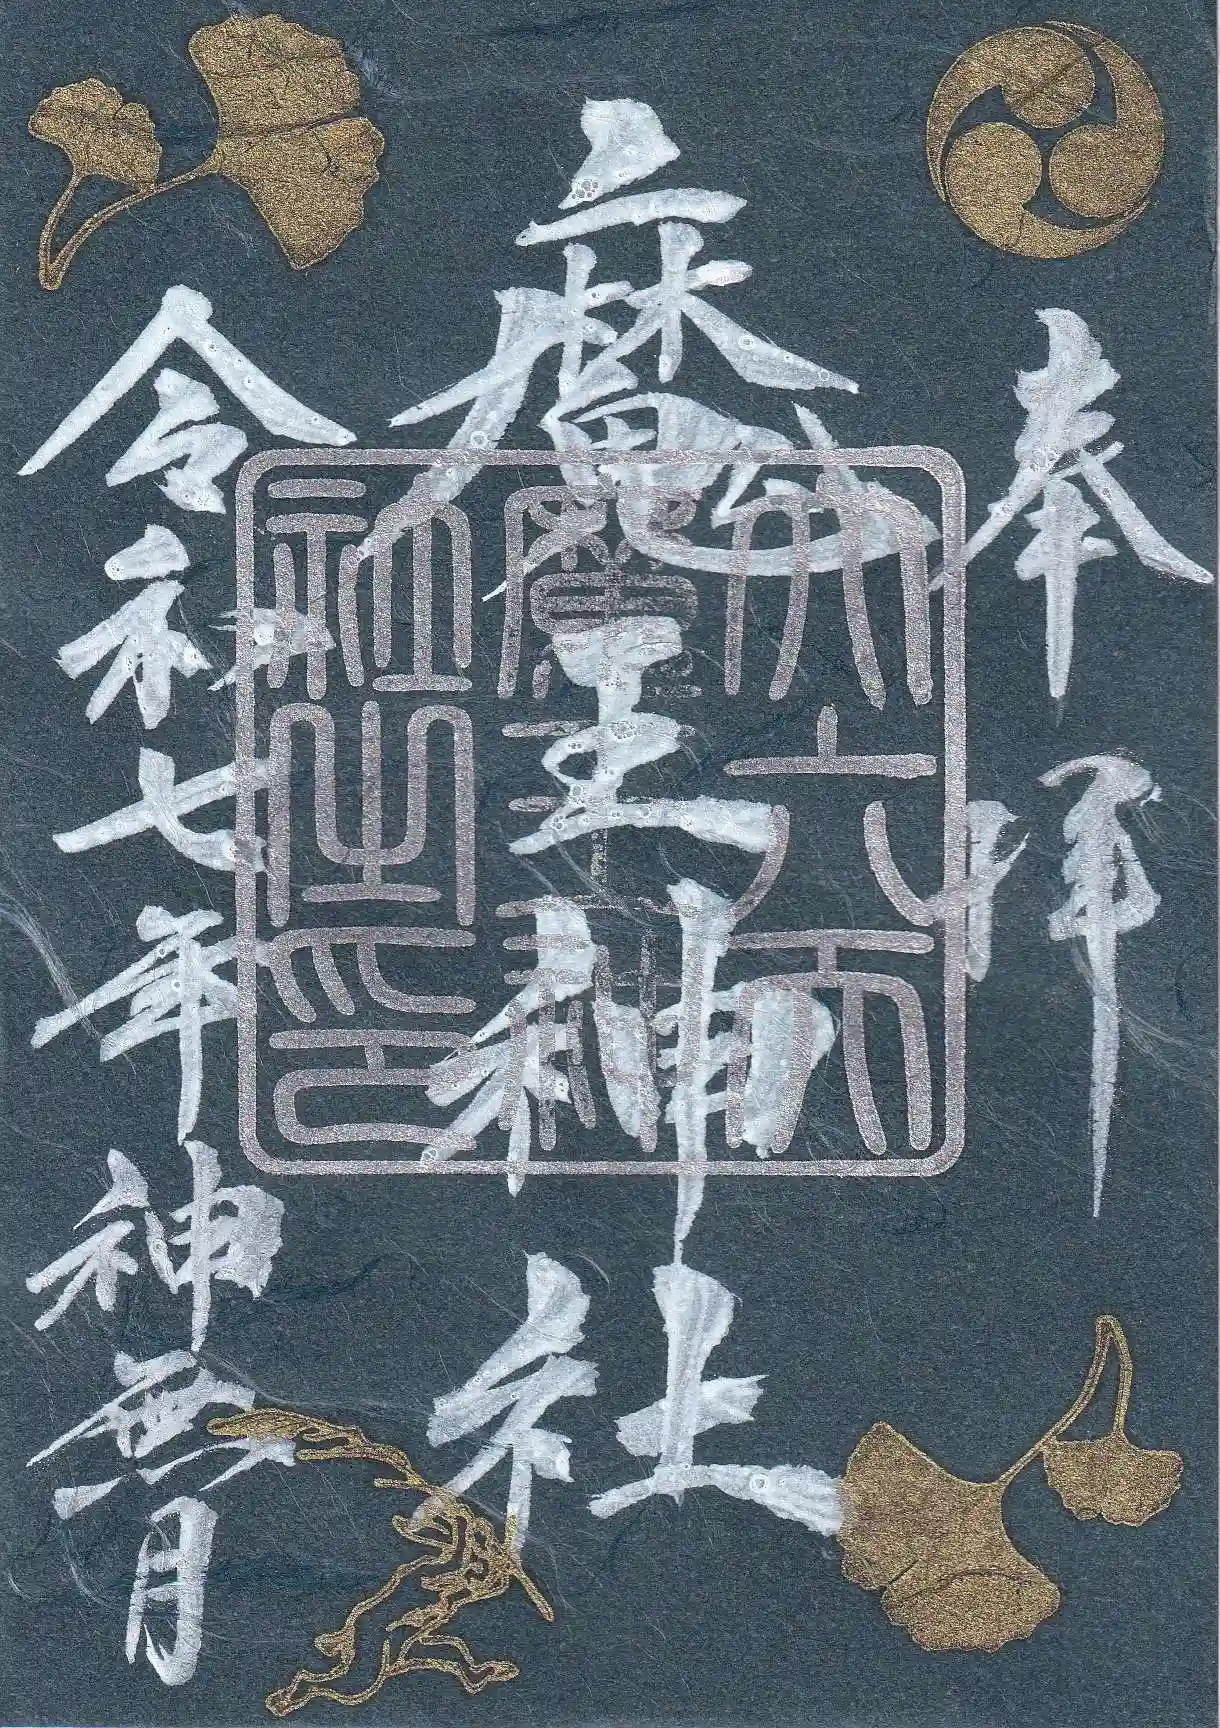 奉拝
魔王神社
令和七年神無月
大六天
魔王神
社之印